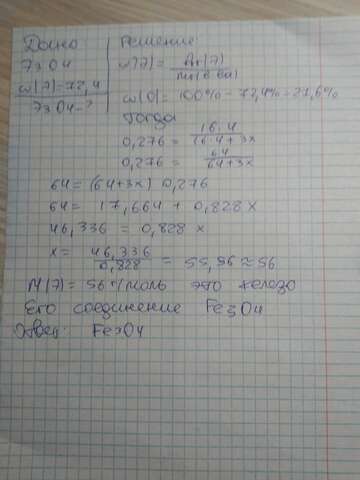 Дано
Решение
7з О4
w(7) = Ar(7) / Mr(в-ва)
w(7)=72,4
7з О4-?
w(O) = 100% - 72,4% = 27,6%
Тогда
0,276 = 16·4 / 16·4 + 3x
0,276 = 64 / 64+3x
64 = (64+3x) 0,276
64 = 17,664 + 0,828 x
46,336 = 0,828 x
x = 46,336 / 0,828 = 55,96 ≈ 56
М(7) = 56 г/моль это железо
Его соединение Fe3O4
Ответ: Fe3O4